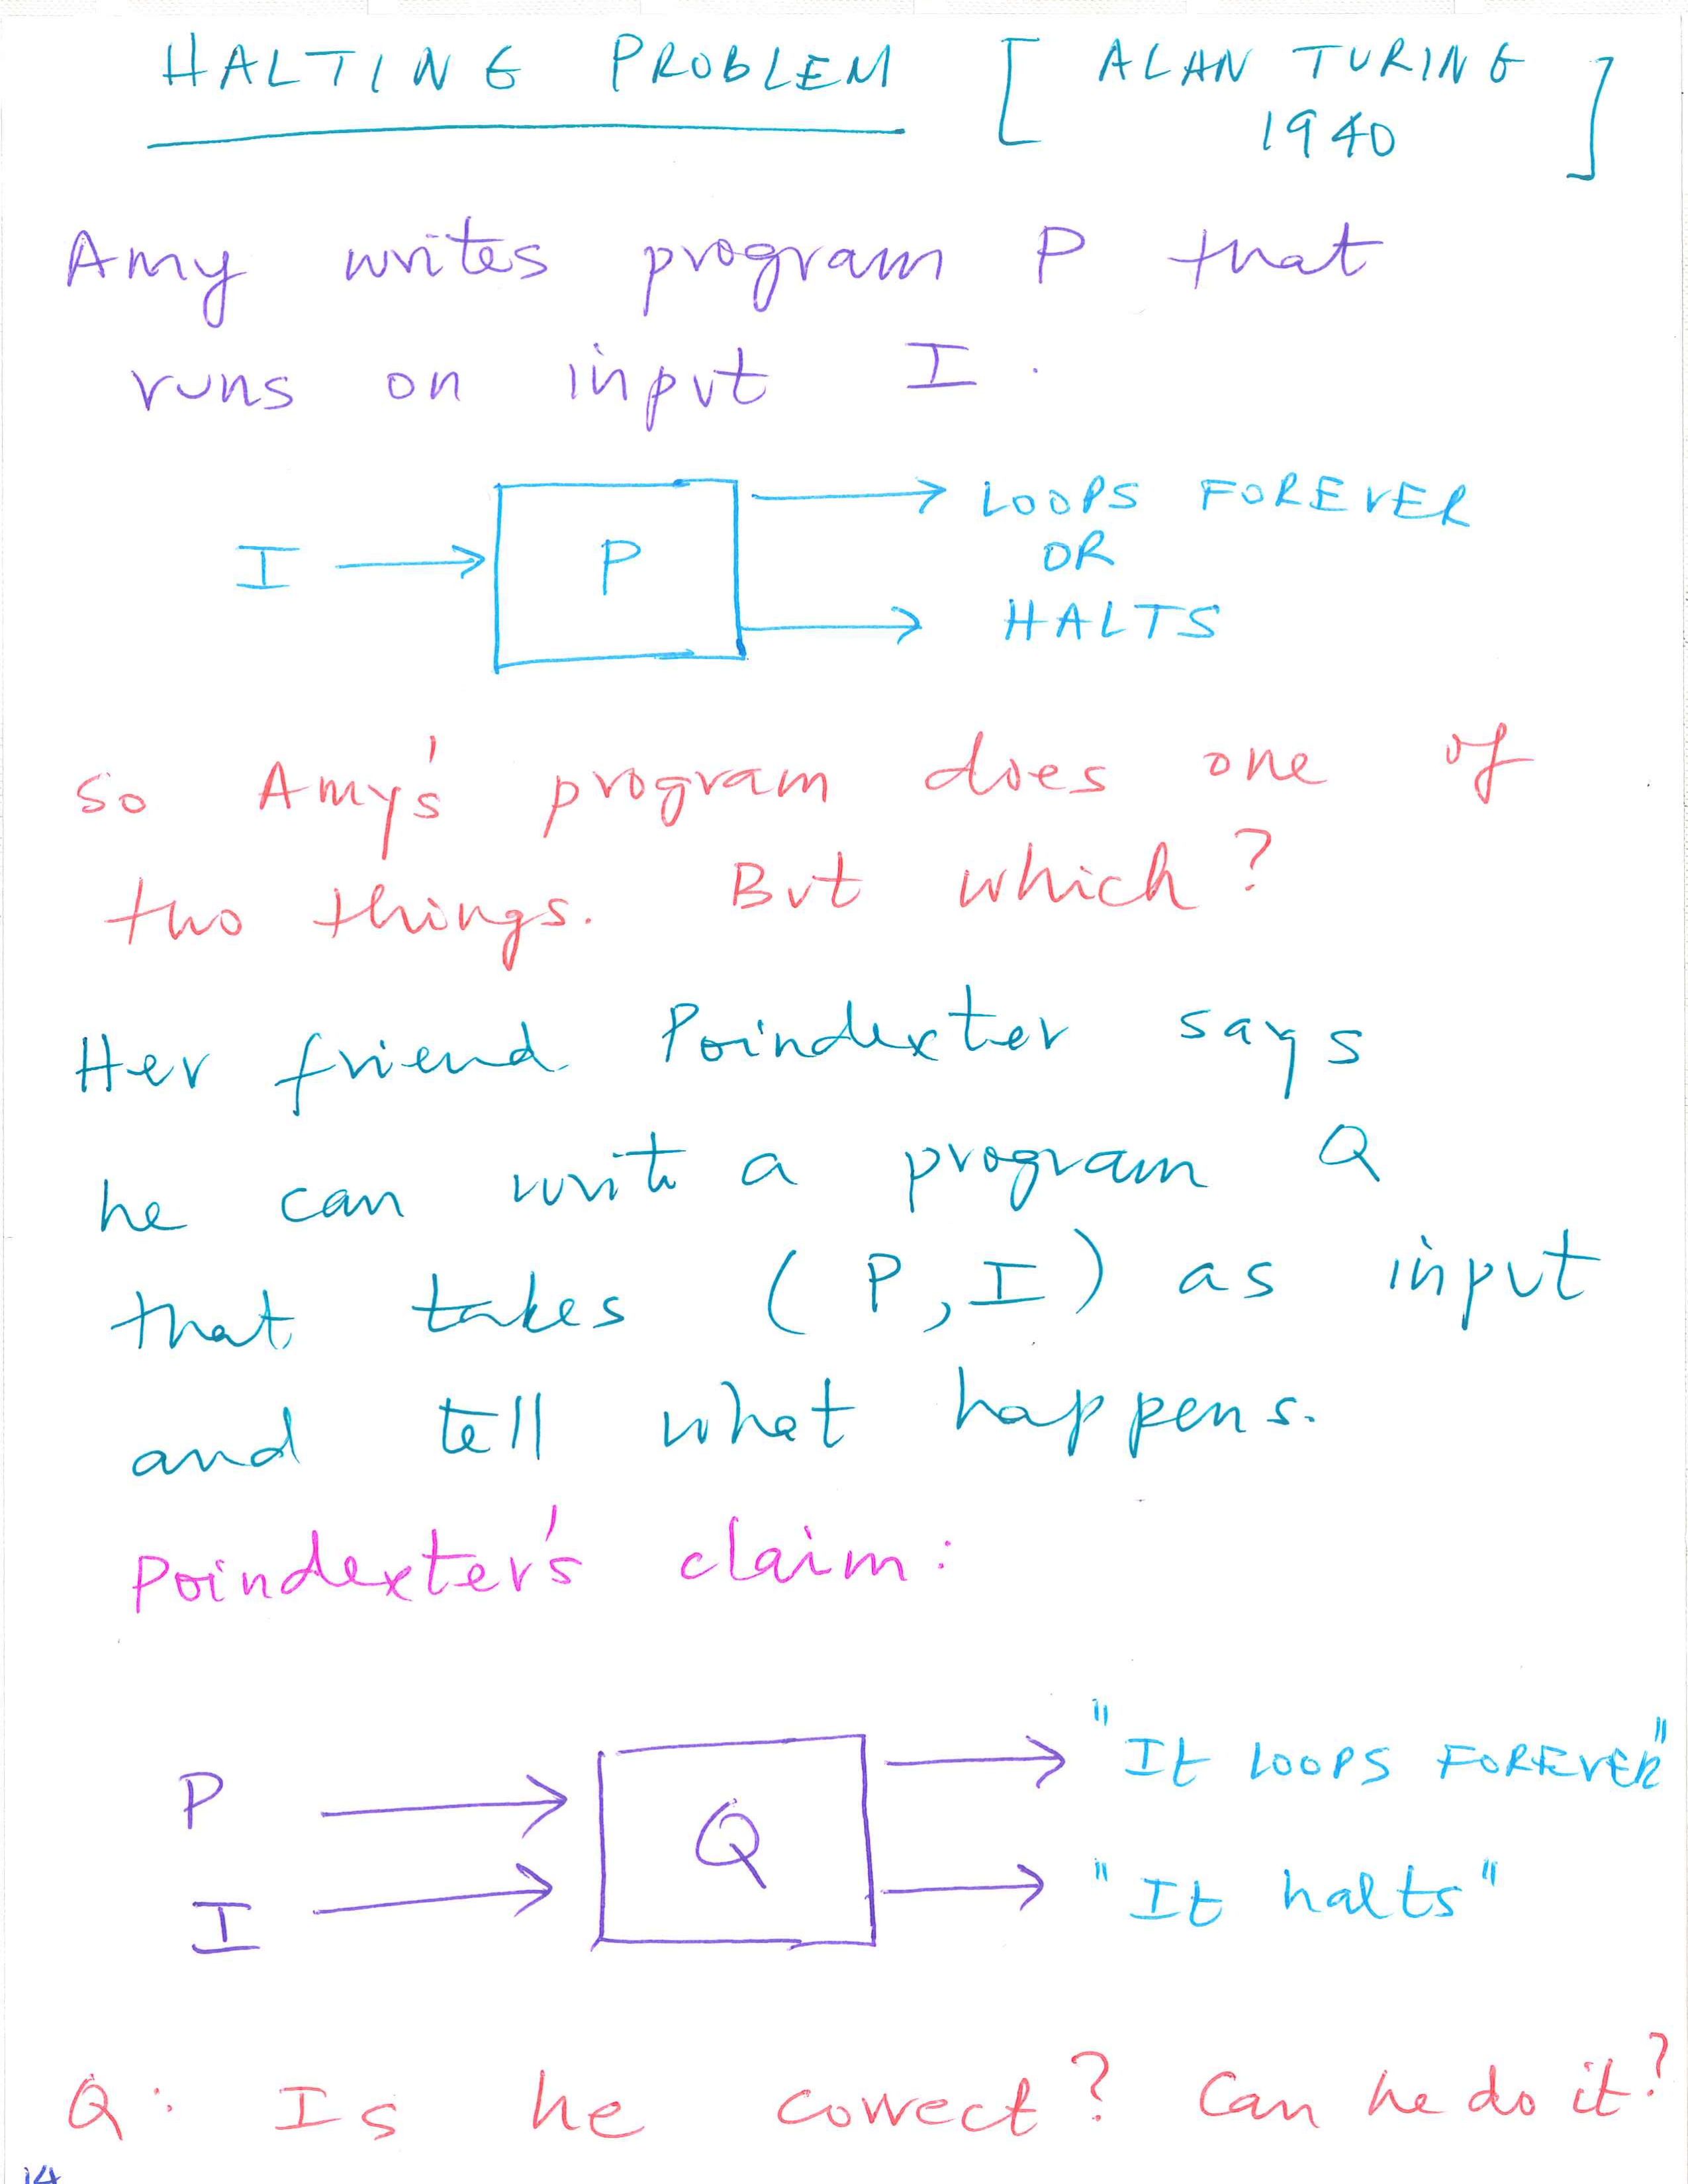 HALTING PROBLEM [ ALAN TURING
1940 ]
Amy writes program P that
runs on input I.
LOOPS FOREVER
I P OR
HALTS
So Amy's program does one of
two things. But which?
Her friend Poindexter says
he can write a program Q
that takes (P, I) as input
and tell what happens.
Poindexter's claim:
"It LOOPS FOREVER"
P
Q
"It halts"
I
Q: Is he correct? Can he do it?
14